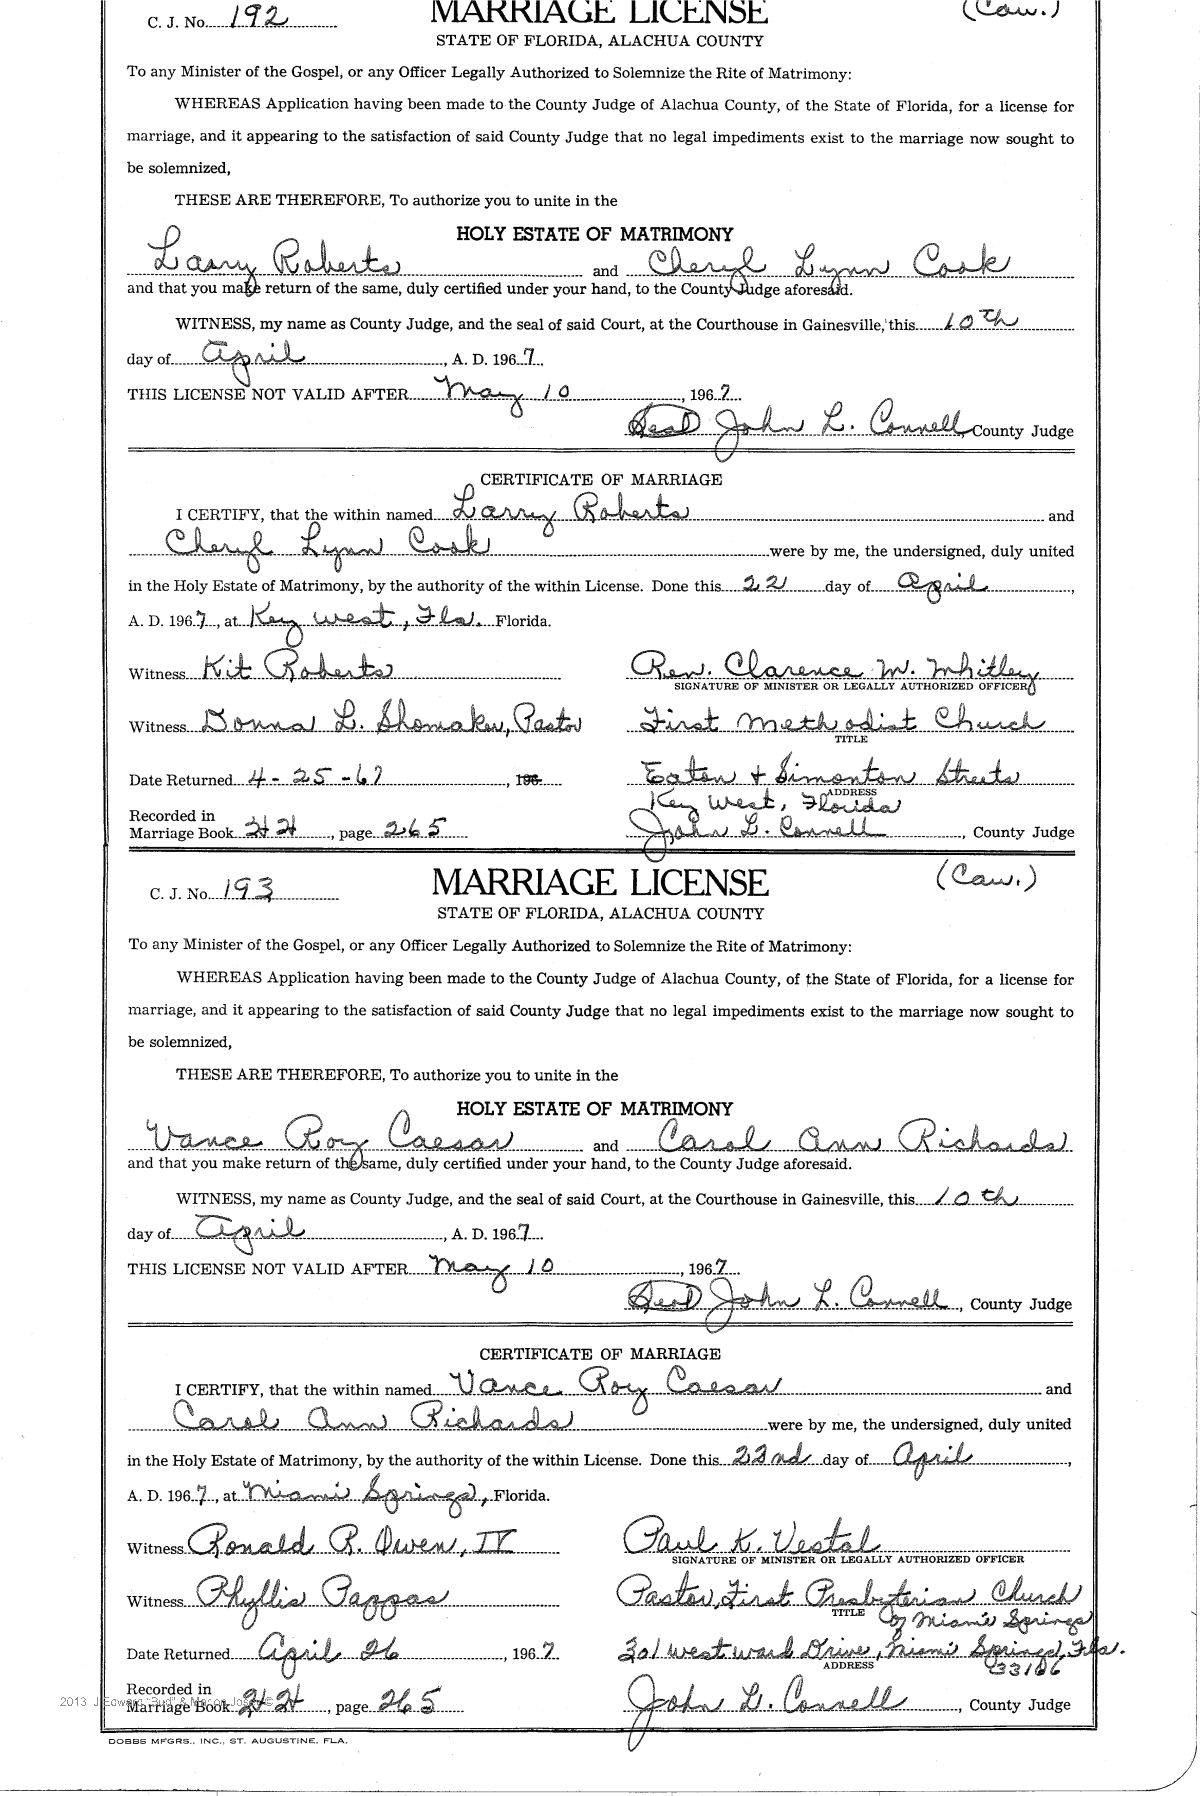 C. J. No. 192 MARRIAGE LICENSE (Cau.)
STATE OF FLORIDA, ALACHUA COUNTY
To any Minister of the Gospel, or any Officer Legally Authorized to Solemnize the Rite of Matrimony:
WHEREAS Application having been made to the County Judge of Alachua County, of the State of Florida, for a license for
marriage, and it appearing to the satisfaction of said County Judge that no legal impediments exist to the marriage now sought to
be solemnized,
THESE ARE THEREFORE, To authorize you to unite in the
HOLY ESTATE OF MATRIMONY
Larry Roberts and Cheryl Lynn Cook
and that you make return of the same, duly certified under your hand, to the County Judge aforesaid.
WITNESS, my name as County Judge, and the seal of said Court, at the Courthouse in Gainesville, this 10th
day of April, A. D. 1967.
THIS LICENSE NOT VALID AFTER May 10, 1967
Seal John L. Connell, County Judge
CERTIFICATE OF MARRIAGE
I CERTIFY, that the within named Larry Roberts and
Cheryl Lynn Cook were by me, the undersigned, duly united
in the Holy Estate of Matrimony, by the authority of the within License. Done this 22 day of April,
A. D. 1967, at Key West, Fla. Florida.
Witness Kit Roberts Rev. Clarence M. Whitley
SIGNATURE OF MINISTER OR LEGALLY AUTHORIZED OFFICER
Witness Donna L. Shomaker, Pastor First Methodist Church
TITLE
Date Returned 4-25-67, 196 Eaton + Simonton Streets
ADDRESS
Key West, Florida
Recorded in
Marriage Book 242, page 265 John L. Connell, County Judge
C. J. No. 193 MARRIAGE LICENSE (Cau.)
STATE OF FLORIDA, ALACHUA COUNTY
To any Minister of the Gospel, or any Officer Legally Authorized to Solemnize the Rite of Matrimony:
WHEREAS Application having been made to the County Judge of Alachua County, of the State of Florida, for a license for
marriage, and it appearing to the satisfaction of said County Judge that no legal impediments exist to the marriage now sought to
be solemnized,
THESE ARE THEREFORE, To authorize you to unite in the
HOLY ESTATE OF MATRIMONY
Vance Roy Caesar and Carol Ann Richards
and that you make return of the same, duly certified under your hand, to the County Judge aforesaid.
WITNESS, my name as County Judge, and the seal of said Court, at the Courthouse in Gainesville, this 10th
day of April, A. D. 1967.
THIS LICENSE NOT VALID AFTER May 10, 1967
Seal John L. Connell, County Judge
CERTIFICATE OF MARRIAGE
I CERTIFY, that the within named Vance Roy Caesar and
Carol Ann Richards were by me, the undersigned, duly united
in the Holy Estate of Matrimony, by the authority of the within License. Done this 22nd day of April,
A. D. 1967, at Miami Springs, Florida.
Witness Ronald R. Owen, IV Paul K. Vestal
SIGNATURE OF MINISTER OR LEGALLY AUTHORIZED OFFICER
Witness Phyllis Pappas Pastor, First Presbyterian Church
TITLE of Miami Springs
Date Returned April 26, 1967. 301 Westward Drive, Miami Springs, Fla.
ADDRESS 33166
Recorded in
Marriage Book 242, page 265 John L. Connell, County Judge
DOBBS MFGRS., INC., ST. AUGUSTINE, FLA.